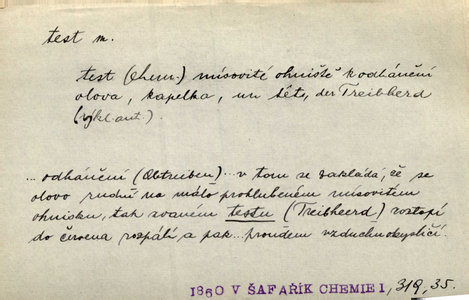 test m.
test (chem.) mísovité ohniště k odhánění
olova, kapelka, un têt, der Treibherd
(výkl. aut.).
... odhánění (Abtreiben) ... v tom se zakládá, že se
olovo rudné na málo prohlubeném mísovitém
ohnisku, tak zvaném testu (Treibheerd) roztopí
do červena rozpálí a pak ... proudem vzduchu okysličí.
1860 V ŠAFAŘÍK CHEMIE I, 319, 35.